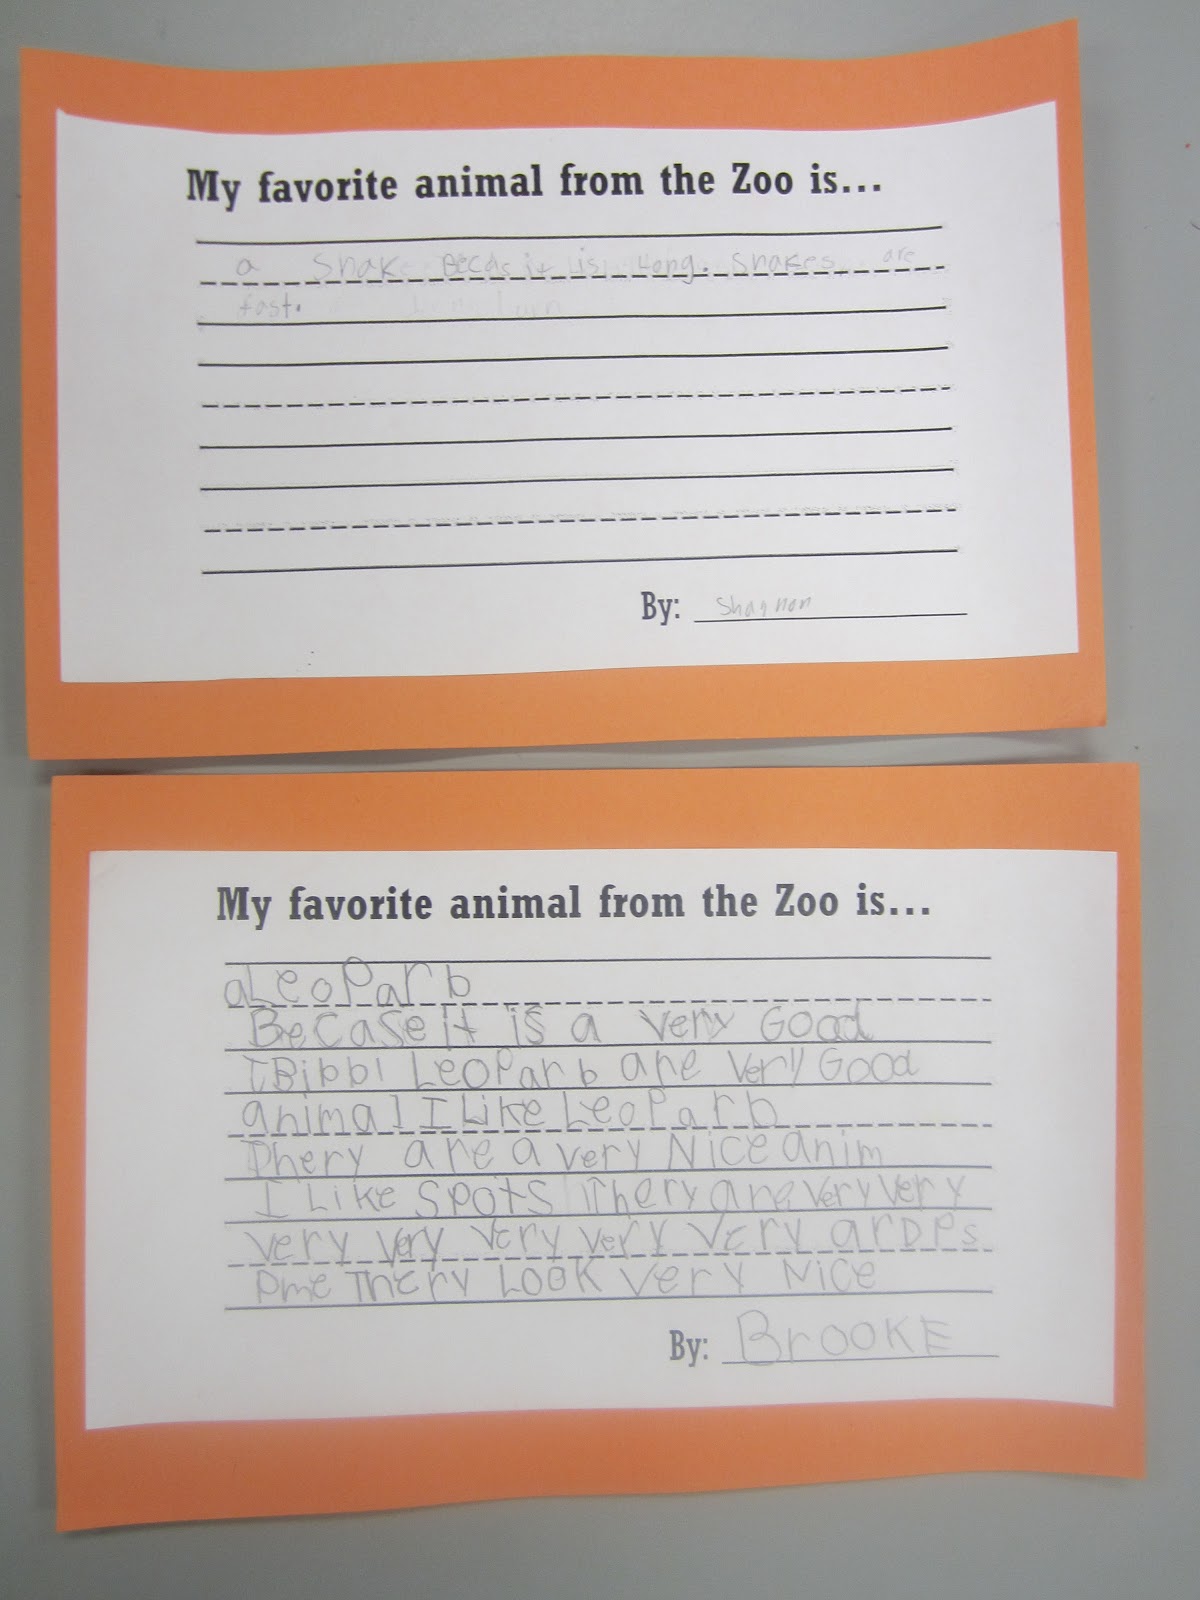 My favorite animal from the Zoo is...
a Snake Becas it is Long. Snakes are
fast.
By: Shannon
My favorite animal from the Zoo is...
a Leoparb
Becase it is a very Good
Leoparb are very Good
animal I Like Leoparb
Phery are a very Nice anim
I Like Spots Thery are very very
very very very very very
Thery Look very Nice
By: BrooKE